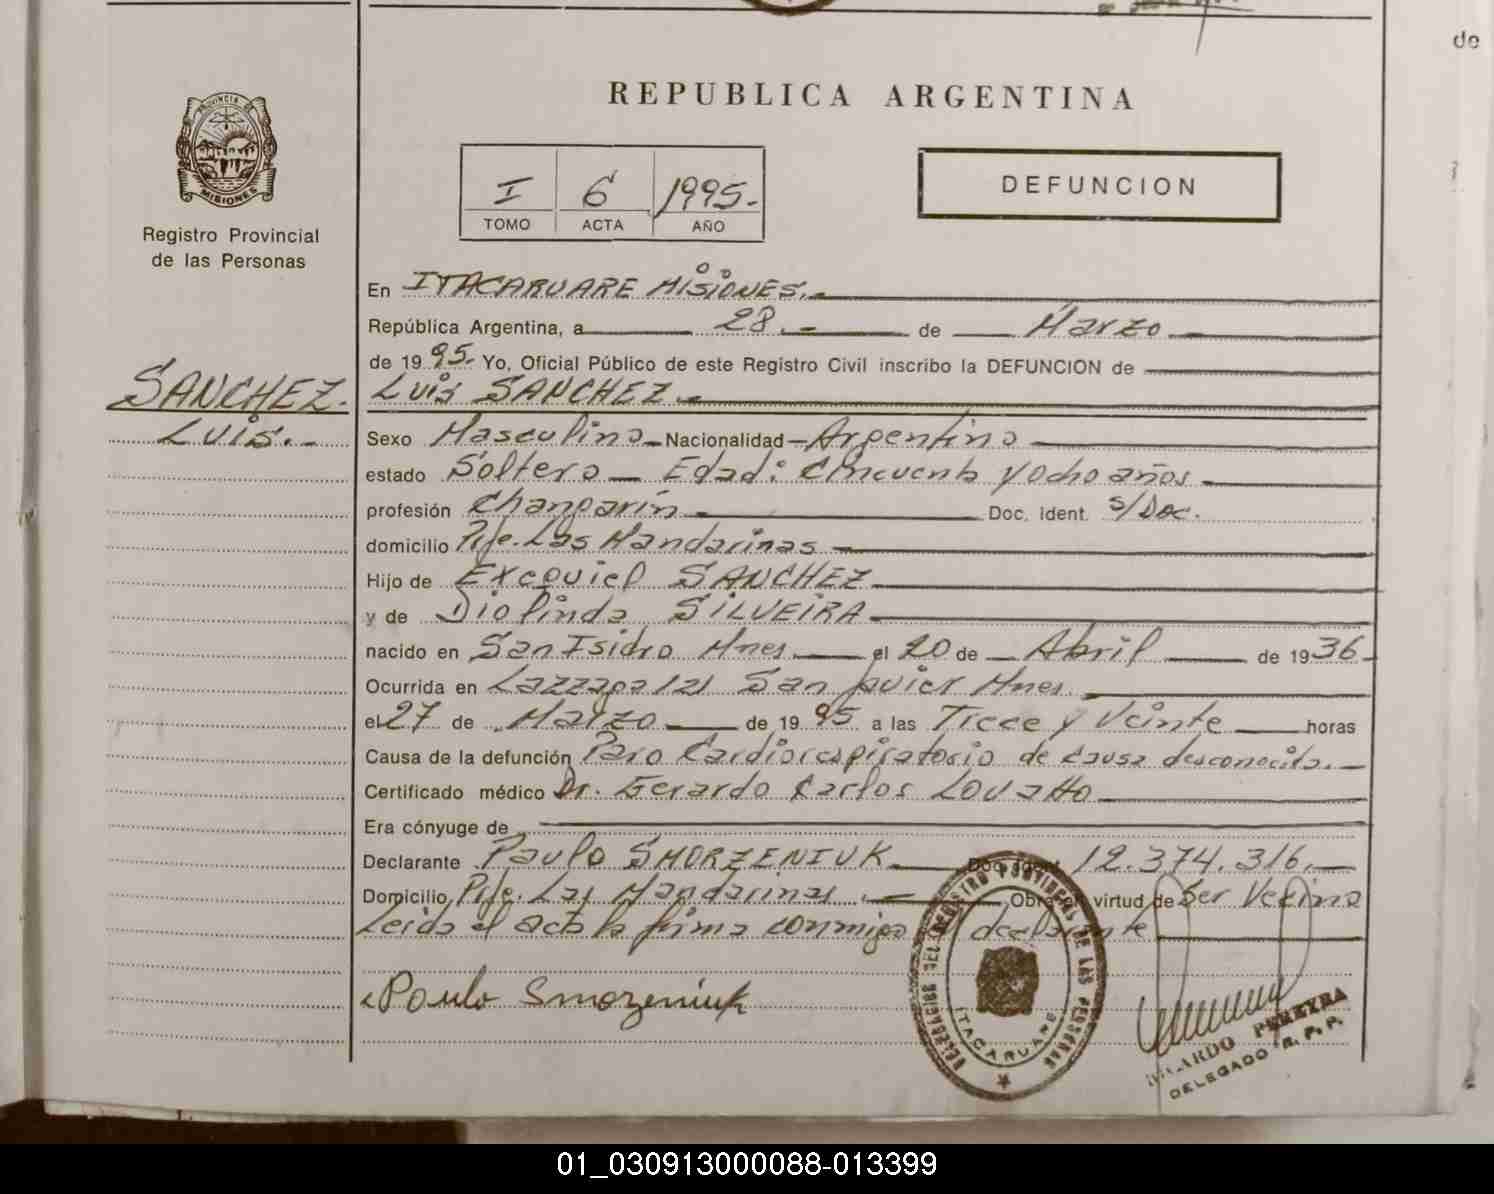 de
REPUBLICA ARGENTINA
PROVINCIA DE
MISIONES
Registro Provincial
de las Personas
I 6 1995.-
TOMO ACTA AÑO
DEFUNCION
En ITACARUARE MISIONES.-
República Argentina, a 28.- de Marzo
de 1995.- Yo, Oficial Público de este Registro Civil inscribo la DEFUNCION de
SANCHEZ.
LUIS.-
Luis SANCHEZ.-
Sexo Masculino - Nacionalidad - Argentino
estado Soltero - Edad: Cincuenta y ocho años
profesión Changarín Doc. Ident. s/Doc.
domicilio Pje. Las Mandarinas -
Hijo de Exequiel SANCHEZ
y de Diolinda SILVEIRA
nacido en San Isidro Mnes. el 20 de Abril de 1936
Ocurrida en San Javier Mnes.
el 27 de Marzo de 1995 a las Trece y Veinte horas
Causa de la defunción Paro Cardiorespiratorio de causa desconocida.-
Certificado médico Dr. Gerardo Carlos LOVATTO
Era cónyuge de
Declarante Paulo SMORZENIUK Doc. Ident. 12.374.316.-
Domicilio Pje. Las Mandarinas.- Obra en virtud de Ser Vecino
Leida el acta la firma conmigo el declarante
Paulo Smozeniuk
DELEGACION DEL REGISTRO PROVINCIAL DE LAS PERSONAS
ITACARUARE
PEREYRA
DELEGADO R. P. P.
01_030913000088-013399